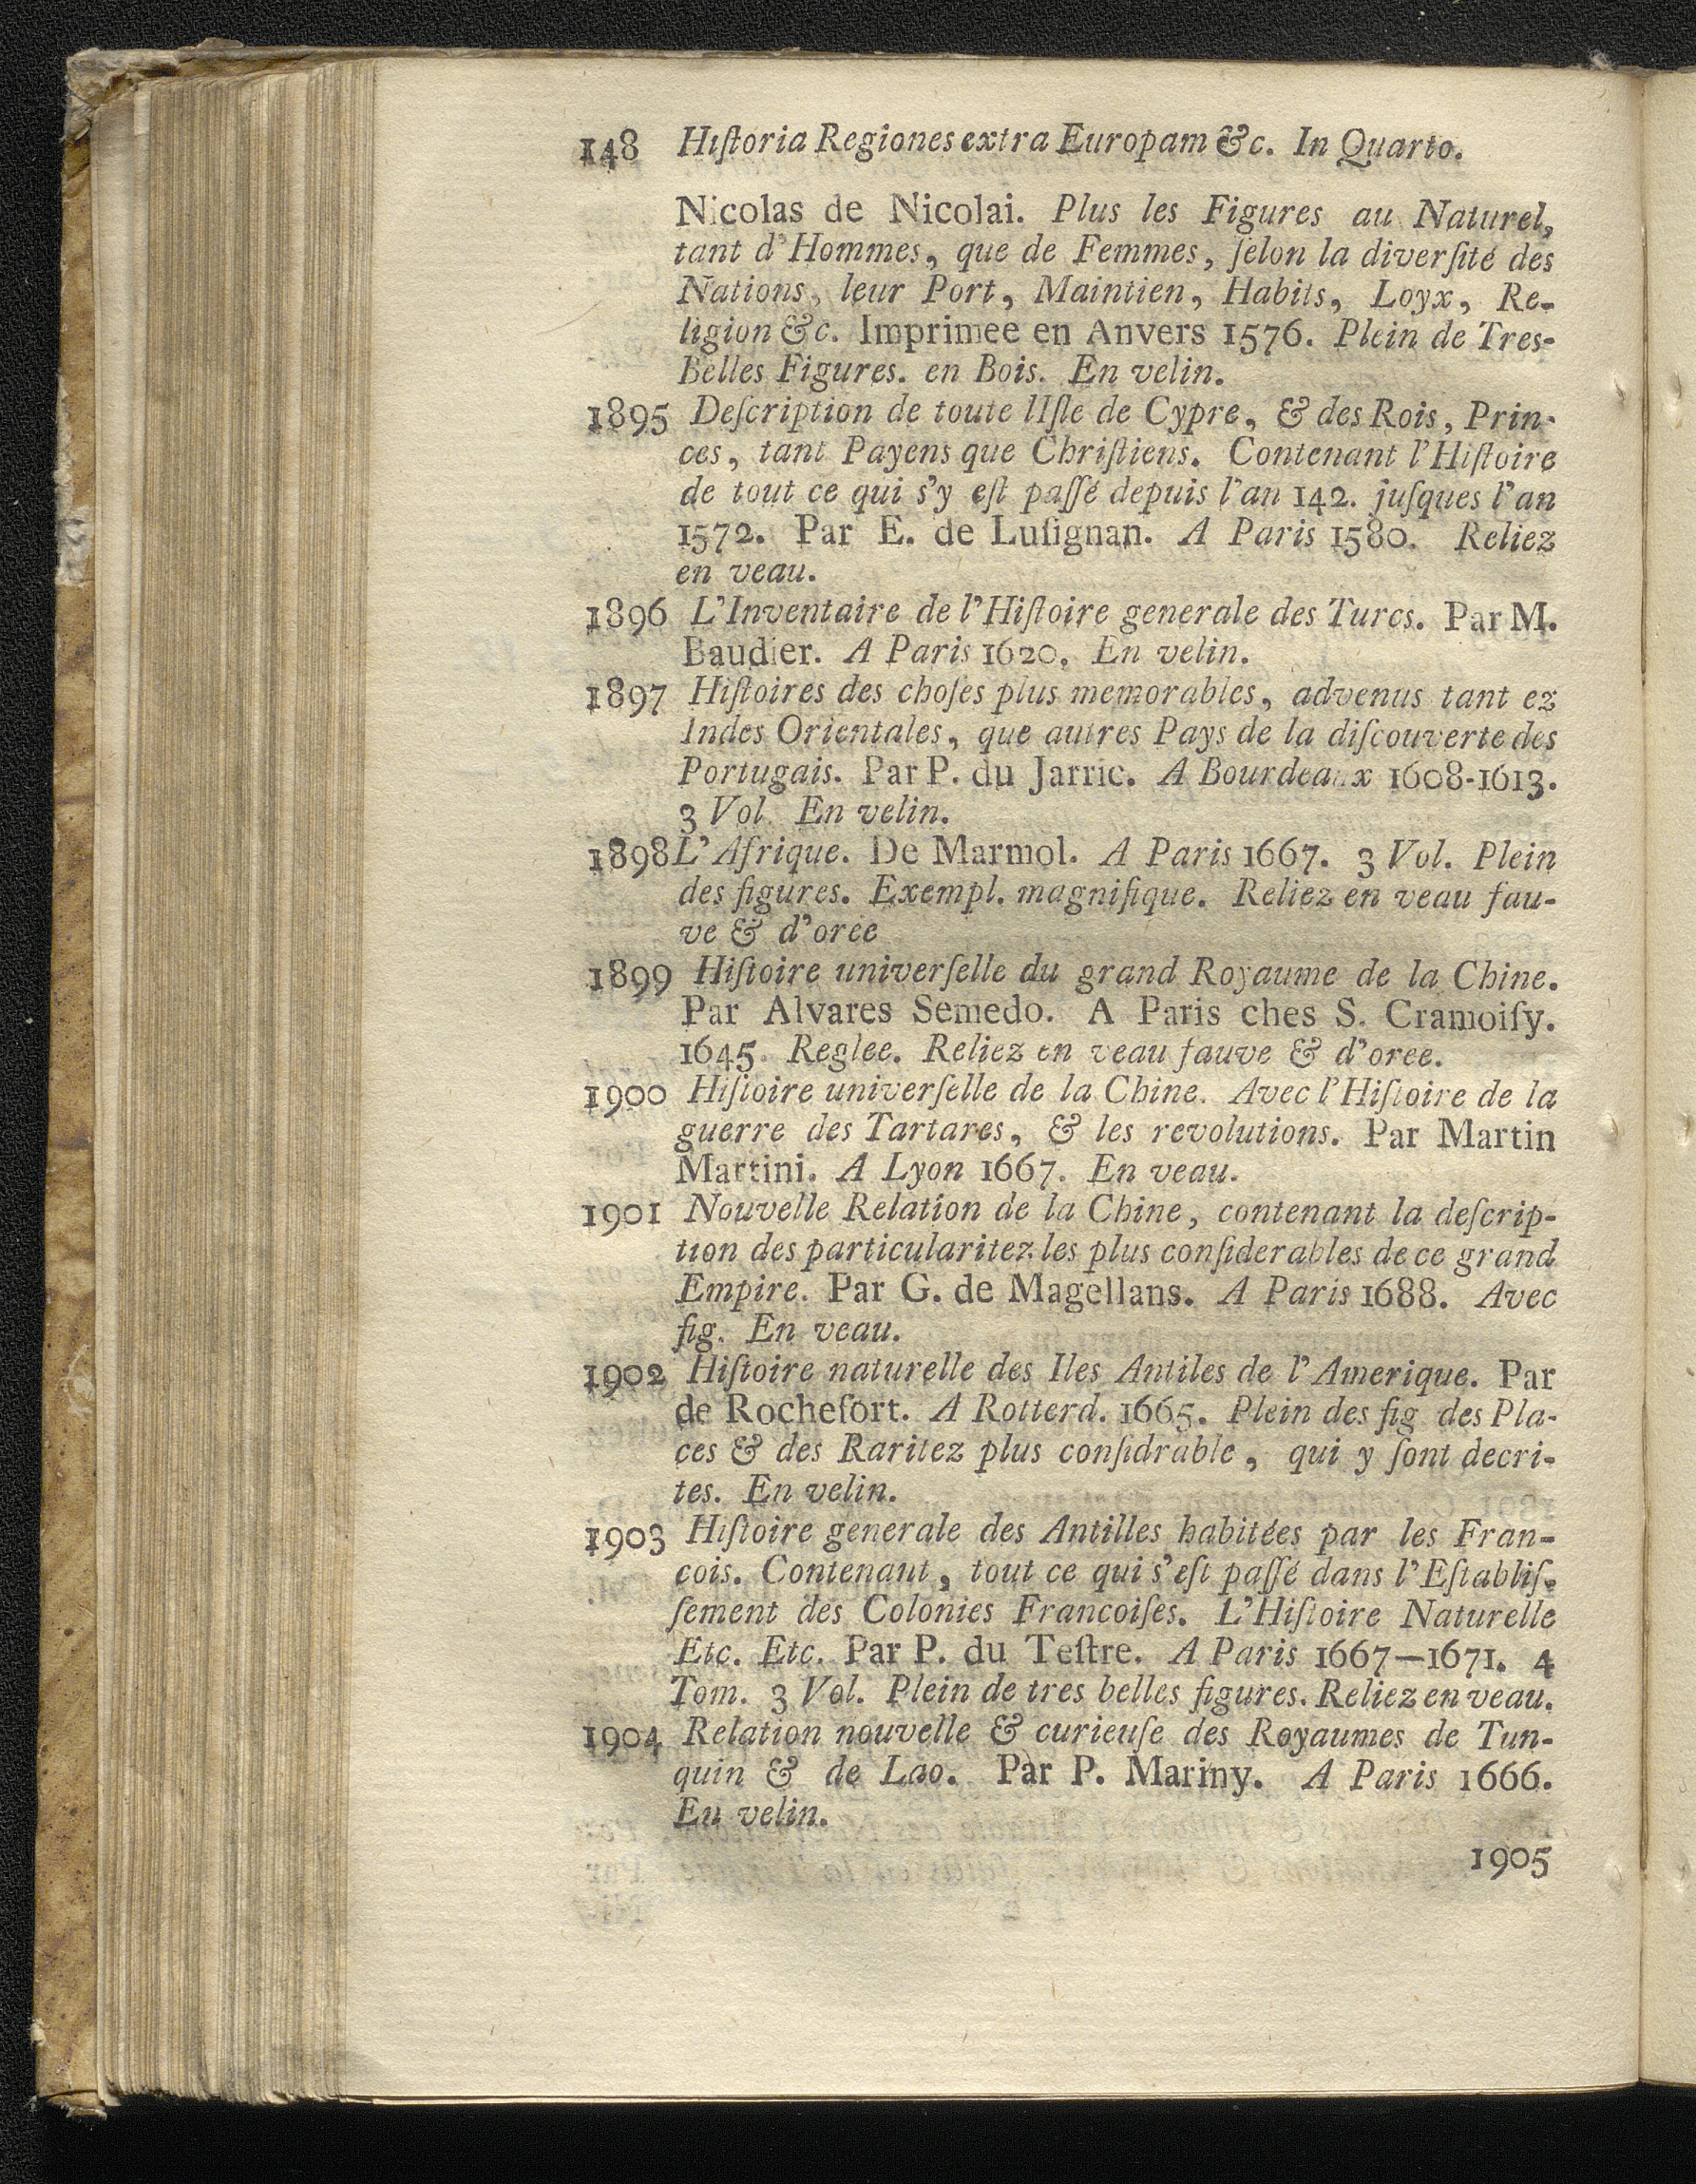 148 Hiſtoria Regiones extra Europam &c. In Quarto.
Nicolas de Nicolai. Plus les Figures au Naturel,
tant d'Hommes, que de Femmes, ſelon la diverſité des
Nations, leur Port, Maintien, Habits, Loyx, Re-
ligion &c. Imprimee en Anvers 1576. Plein de Tres-
Belles Figures. en Bois. En velin.
1895 Deſcription de toute lIſle de Cypre, & des Rois, Prin-
ces, tant Payens que Chriſtiens. Contenant l'Hiſtoire
de tout ce qui s'y eſt paſſé depuis l'an 142. juſques l'an
1572. Par E. de Luſignan. A Paris 1580. Reliez
en veau.
1896 L'Inventaire de l'Hiſtoire generale des Turcs. Par M.
Baudier. A Paris 1620. En velin.
1897 Hiſtoires des choſes plus memorables, advenus tant ez
Indes Orientales, que autres Pays de la diſcouverte des
Portugais. Par P. du Jarric. A Bourdeaux 1608-1613.
3 Vol. En velin.
1898 L'Afrique. De Marmol. A Paris 1667. 3 Vol. Plein
des figures. Exempl. magnifique. Reliez en veau fau-
ve & d'orée
1899 Hiſtoire univerſelle du grand Royaume de la Chine.
Par Alvares Semedo. A Paris ches S. Cramoiſy.
1645. Reglee. Reliez en veau fauve & d'oree.
1900 Hiſtoire univerſelle de la Chine. Avec l'Hiſtoire de la
guerre des Tartares, & les revolutions. Par Martin
Martini. A Lyon 1667. En veau.
1901 Nouvelle Relation de la Chine, contenant la deſcrip-
tion des particularitez les plus conſiderables de ce grand
Empire. Par G. de Magellans. A Paris 1688. Avec
fig. En veau.
1902 Hiſtoire naturelle des Iles Antiles de l'Amerique. Par
de Rochefort. A Rotterd. 1665. Plein des fig des Pla-
ces & des Raritez plus conſidrable, qui y ſont decri-
tes. En velin.
1903 Hiſtoire generale des Antilles habitées par les Fran-
cois. Contenant, tout ce qui s'eſt paſſé dans l'Eſtabliſ-
ſement des Colonies Francoiſes. L'Hiſtoire Naturelle
Etc. Etc. Par P. du Teſtre. A Paris 1667—1671. 4
Tom. 3 Vol. Plein de tres belles figures. Reliez en veau.
1904 Relation nouvelle & curieuſe des Royaumes de Tun-
quin & de Lao. Par P. Mariny. A Paris 1666.
Eu velin.
1905